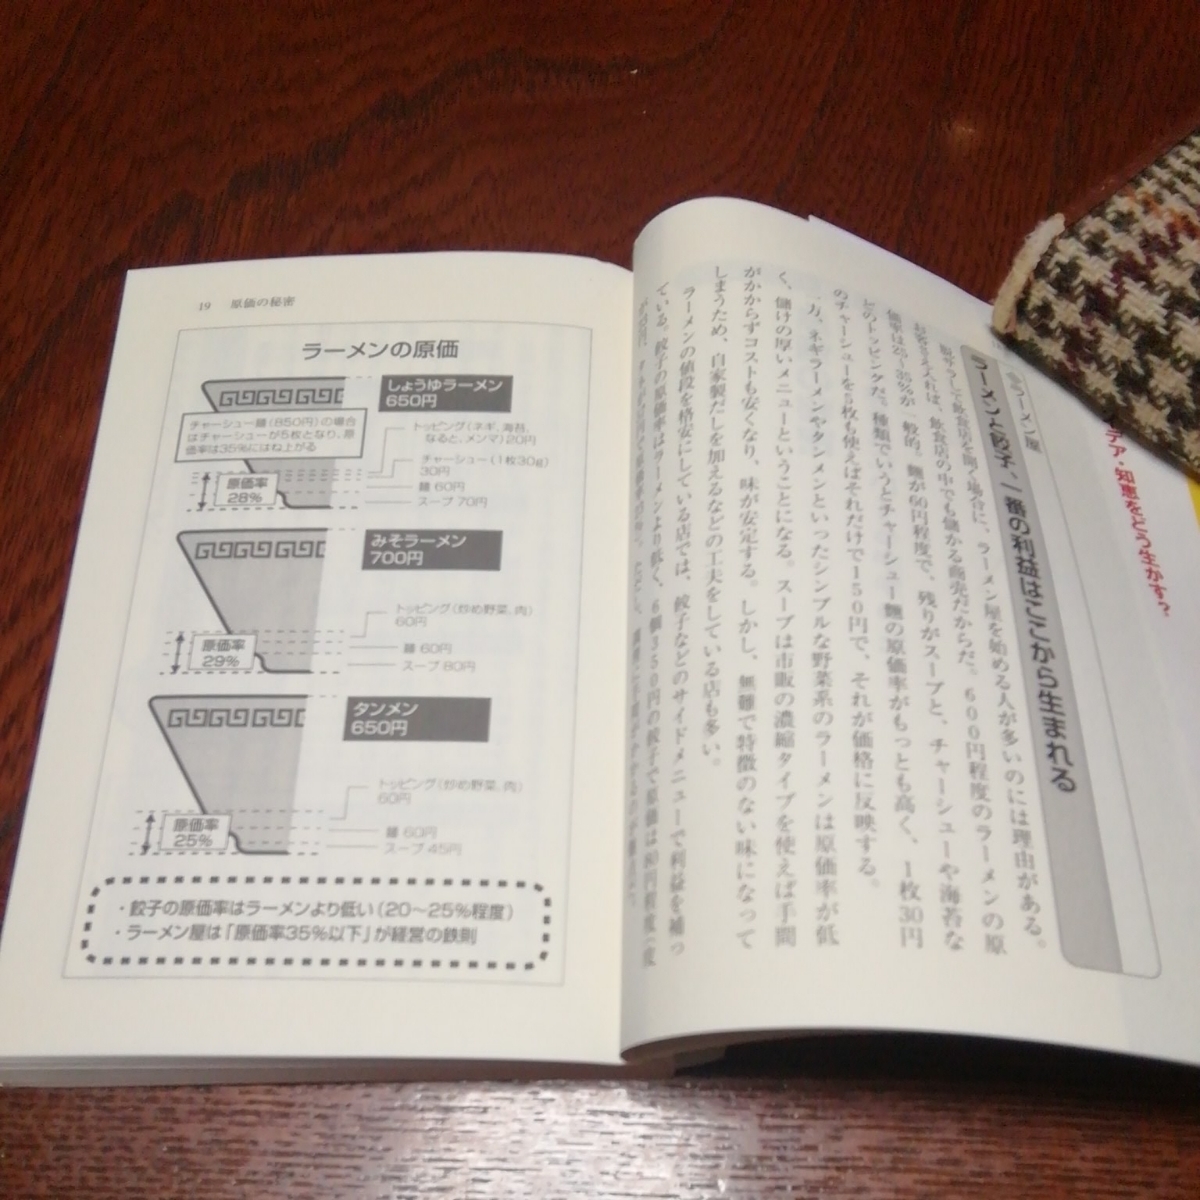 19 原価の秘密
ラーメンの原価
しょうゆラーメン
650円
チャーシュー麺(850円)の場合
はチャーシューが5枚となり、原
価率は35%にはね上がる
トッピング(ネギ、海苔、
なると、メンマ)20円
チャーシュー(1枚30g)
30円
麺 60円
スープ 70円
原価率
28%
みそラーメン
700円
トッピング(炒め野菜、肉)
60円
麺 60円
スープ 80円
原価率
29%
タンメン
650円
トッピング(炒め野菜、肉)
60円
麺 60円
スープ 45円
原価率
25%
・餃子の原価率はラーメンより低い(20〜25%程度)
・ラーメン屋は「原価率35%以下」が経営の鉄則
デア・知恵をどう生かす?
ラーメン屋
ラーメンと餃子、一番の利益はここから生まれる
脱サラして飲食店を開く場合に、ラーメン屋を始める人が多いのには理由がある。
飲食店の中でも儲かる商売だからだ。600円程度のラーメンの原
価率は25〜35%が一般的。麺が60円程度で、残りがスープと、チャーシューや海苔な
どのトッピングだ。種類でいうとチャーシュー麺の原価率がもっとも高く、1枚30円
のチャーシューを5枚も使えばそれだけで150円で、それが価格に反映する。
一方、ネギラーメンやタンメンといったシンプルな野菜系のラーメンは原価率が低
く、儲けの厚いメニューということになる。スープは市販の濃縮タイプを使えば手間
がかからずコストも安くなり、味が安定する。しかし、無難で特徴のない味になって
しまうため、自家製だしを加えるなどの工夫をしている店も多い。
ラーメンの値段を格安にしている店では、餃子などのサイドメニューで利益を補っ
ている。餃子の原価率はラーメンより低く、6個350円の餃子で原価は80円程度